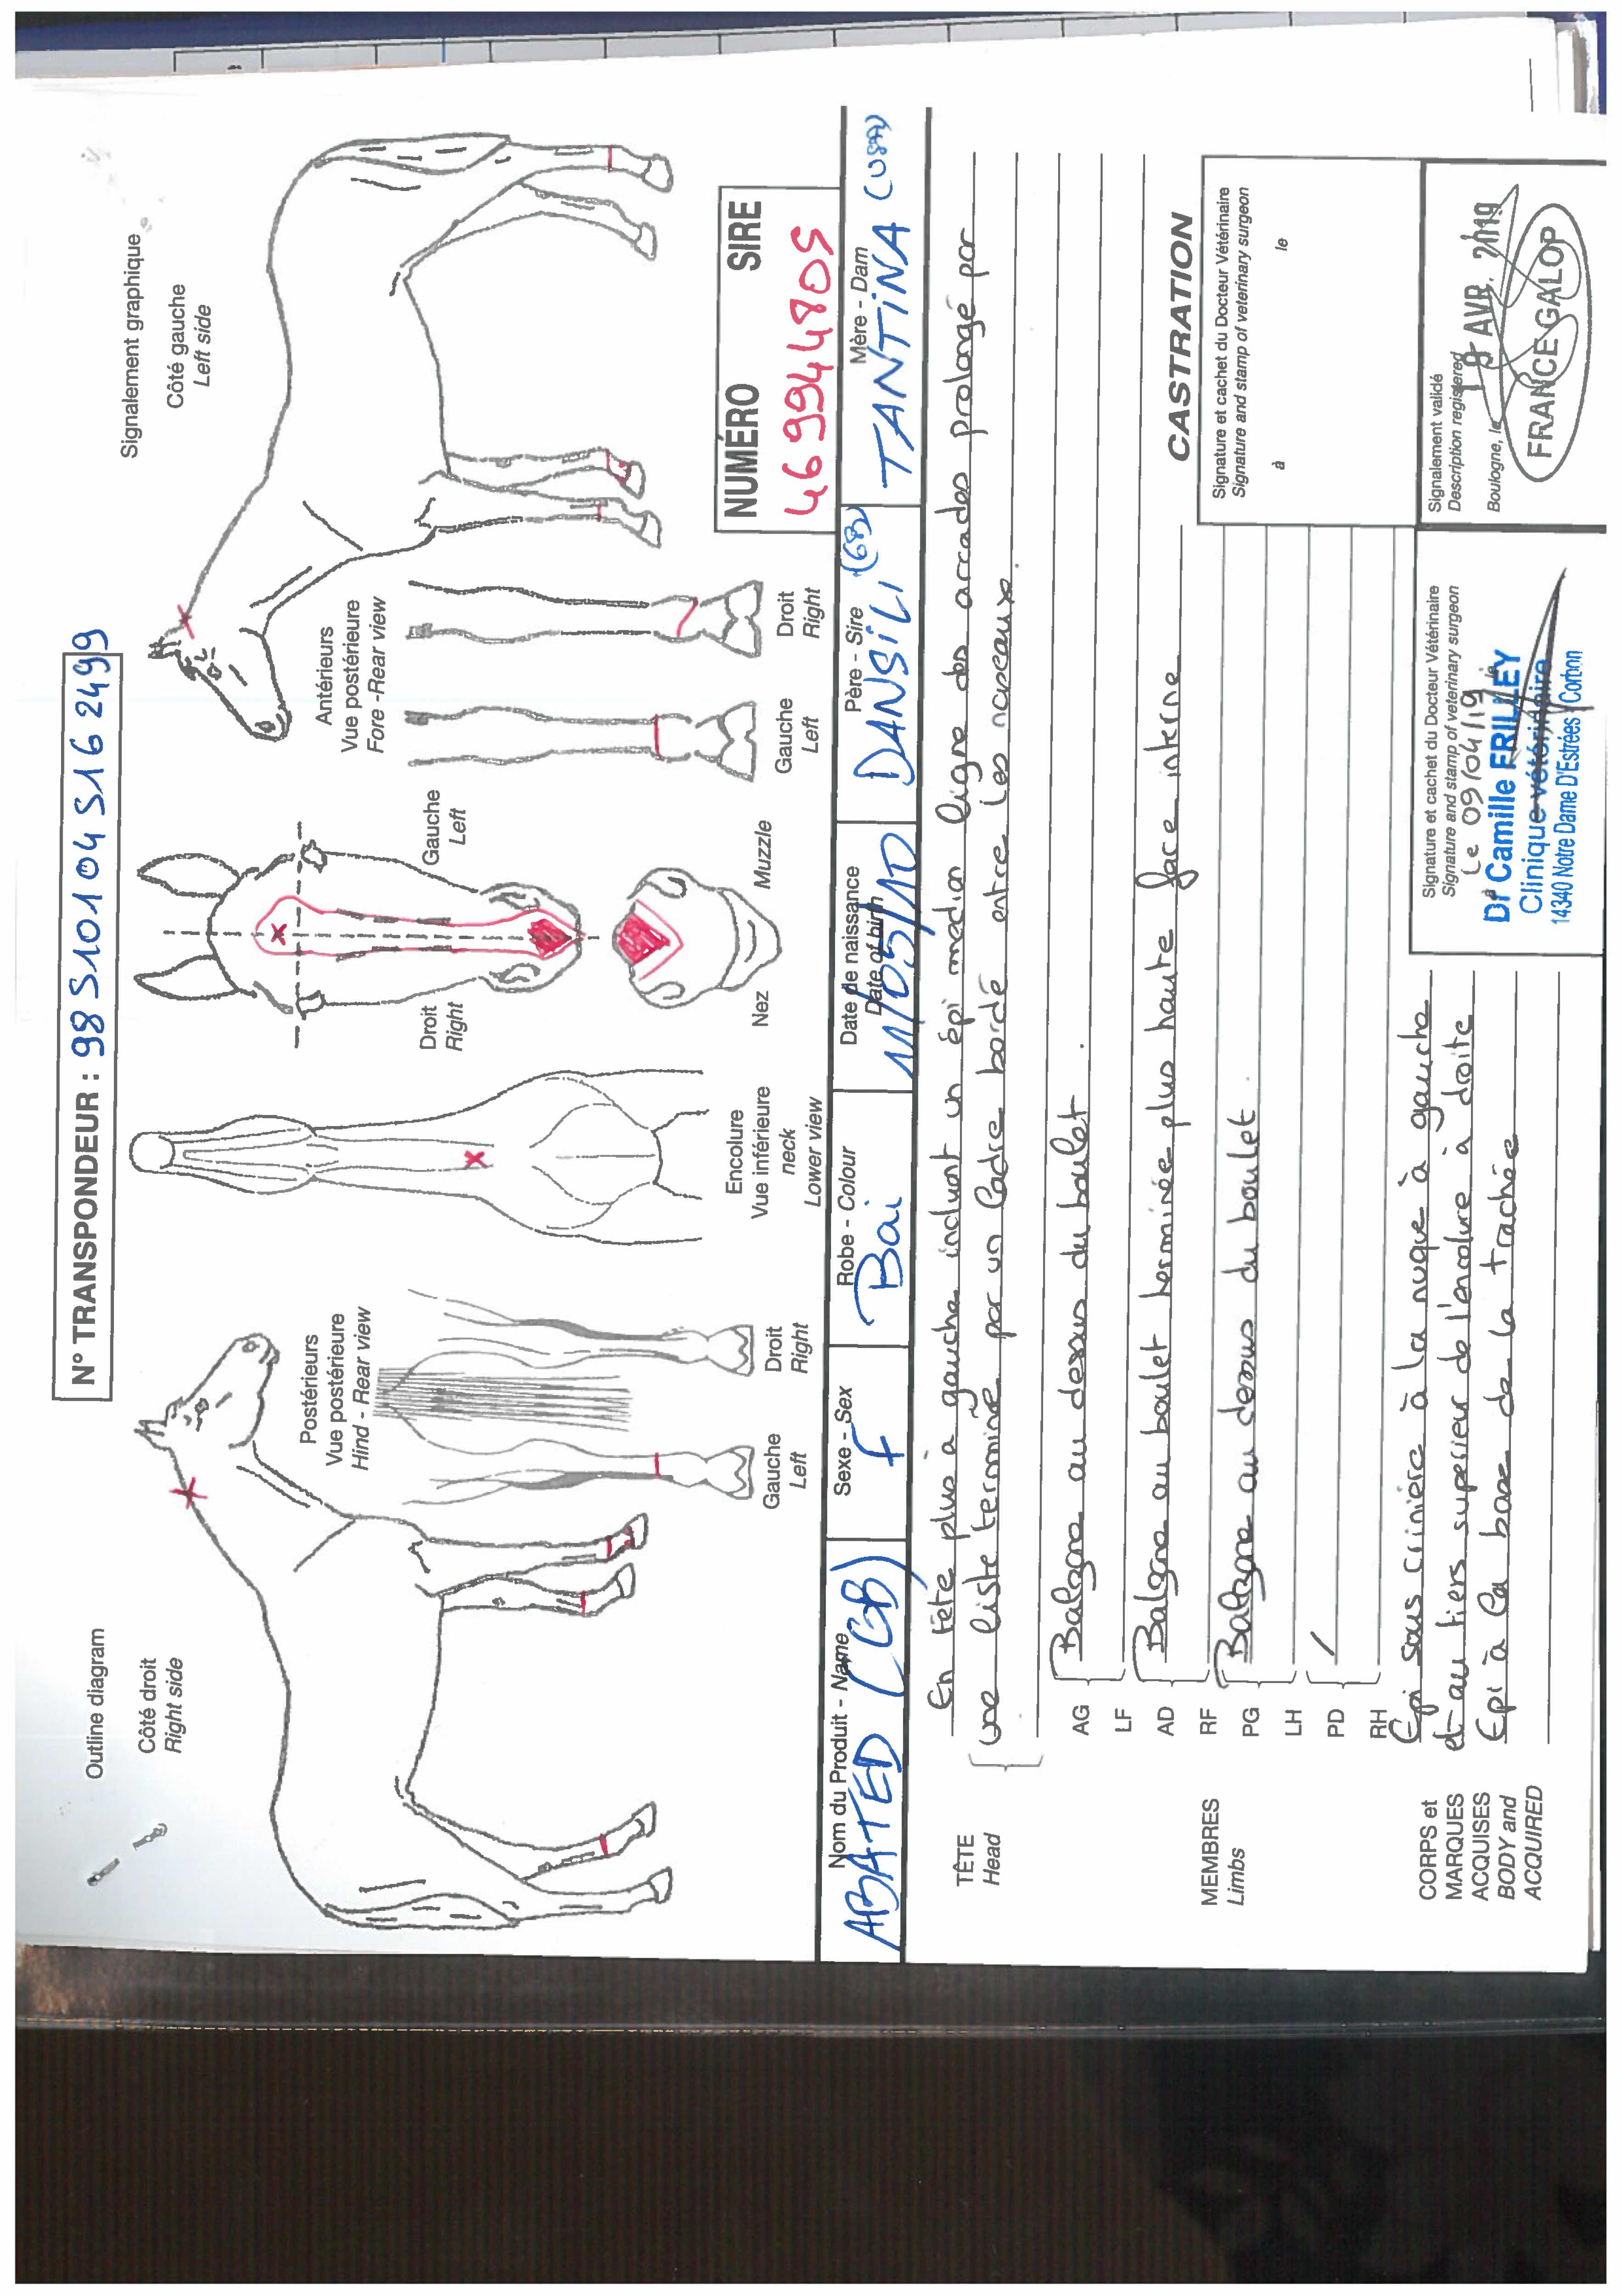 N° TRANSPONDEUR : 985101045162499
Outline diagram
Signalement graphique
Côté droit
Right side
Côté gauche
Left side
Postérieurs
Vue postérieure
Hind - Rear view
Gauche
Left
Droit
Right
Encolure
Vue inférieure
neck
Lower view
Droit
Right
Gauche
Left
Nez
Muzzle
Antérieurs
Vue postérieure
Fore - Rear view
Gauche
Left
Droit
Right
NUMÉRO SIRE
46994480S
Nom du Produit - Name
ABATED (GB)
Sexe - Sex
F
Robe - Colour
Bai
Date de naissance
Date of birth
11/05/10
Père - Sire
DANSILI (GB)
Mère - Dam
TANTINA (USA)
TÊTE
Head
En tête plus à gauche incluant un épi médian ligne des arcades prolongé par
une liste terminée par un ladre bordé entre les naseaux.
MEMBRES
Limbs
AG
LF
Balzane au dessus du boulet.
AD
RF
Balzane au boulet herminée plus haute face interne
PG
LH
Balzane au dessus du boulet.
PD
RH
/
CORPS et
MARQUES
ACQUISES
BODY and
ACQUIRED
Epi sous crinière à la nuque à gauche
et au tiers supérieur de l'encolure à droite
Epi à la base de la trachée
CASTRATION
Signature et cachet du Docteur Vétérinaire
Signature and stamp of veterinary surgeon
à le
Signature et cachet du Docteur Vétérinaire
Signature and stamp of veterinary surgeon
Le 09/04/19
Dr Camille FRILLEY
Clinique vétérinaire
14340 Notre Dame D'Estrées / Corbon
Signalement validé
Description registered
Boulogne, le
18 AVR. 2019
FRANCE GALOP